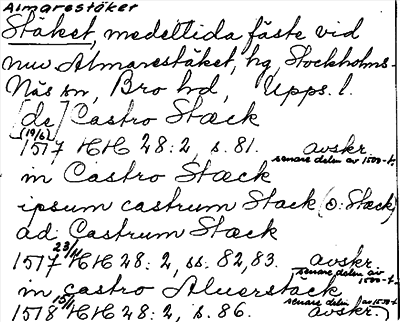 Almarestäket
Stäket, medeltida fäste vid
nuv Almarestäket, hg, Stockholms-
Näs sn, Bro hd, Upps. l.
[de] Castro Stæck
(19/6)
1517 HH 28:2, s. 81. avskr.
senare delen av 1500-t.
in Castro Stæck
ipsum castrum Stæck (o: Stæck)
ad Castrum Stæck
23/11
1517 HH 28:2, ss. 82, 83. avskr.
senare delen av 1500-t.
in castro Aluerstäck
15/1
1518 HH 28:2, s. 86. avskr.
senare delen av 1500-t.